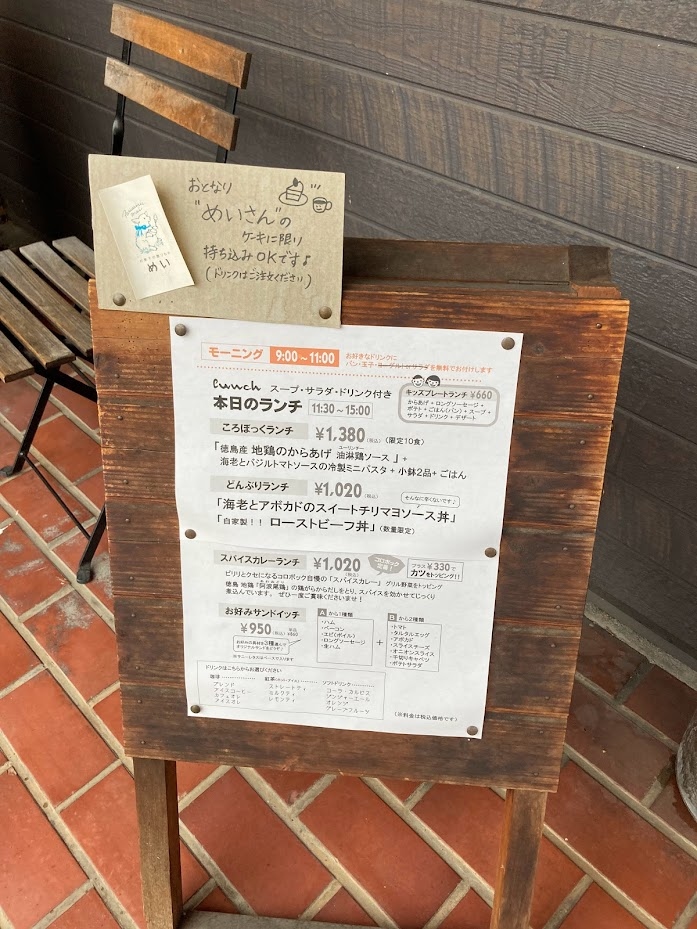 おとなり
"めいさん"の
ケーキに限り
持ち込みOKです♪
(ドリンクはご注文ください)
めい
モーニング 9:00～11:00 お好きなドリンクに
パン・玉子・ヨーグルトorサラダを無料でお付けします
Lunch スープ・サラダ・ドリンク付き
本日のランチ 11:30～15:00
キッズプレートランチ ¥660
からあげ+ロングソーセージ+
ポテト+ごはん(パン)+スープ+
サラダ+ドリンク+デザート
ころぼっくランチ ¥1,380(税込) (限定10食)
「徳島産 地鶏のからあげ 油淋鶏ソース」+
海老とバジルトマトソースの冷製ミニパスタ+小鉢2品+ごはん
どんぶりランチ ¥1,020(税込)
そんなに辛くないです♪
「海老とアボカドのスイートチリマヨソース丼」
「自家製！！ ローストビーフ丼」(数量限定)
スパイスカレーランチ ¥1,020(税込)
プラス¥330で
カツをトッピング!!
ピリリとクセになるコロボック自慢の「スパイスカレー」グリル野菜をトッピング
徳島 地鶏「阿波尾鶏」の鶏がらからだしをとり、スパイスを効かせてじっくり
煮込んでいます。 ぜひ一度ご賞味くださいませ！
お好みサンドイッチ
¥950(税込)
お好みの具材を3種選んで
オリジナルサンドをどうぞ♪
A から1種類
・ハム
・ベーコン
・エビ(ボイル)
・ロングソーセージ
・生ハム
+
B から2種類
・トマト
・タルタルエッグ
・アボカド
・スライスチーズ
・オニオンスライス
・千切りキャベツ
・ポテトサラダ
ドリンクはこちらからお選びください
珈琲
ブレンド
アイスコーヒー
カフェオレ
アイスオレ
紅茶(ホット・アイス)
ストレートティ
ミルクティ
レモンティ
ソフトドリンク
コーラ・カルピス
ジンジャーエール
オレンジ
グレープフルーツ
(※料金は税込価格です)